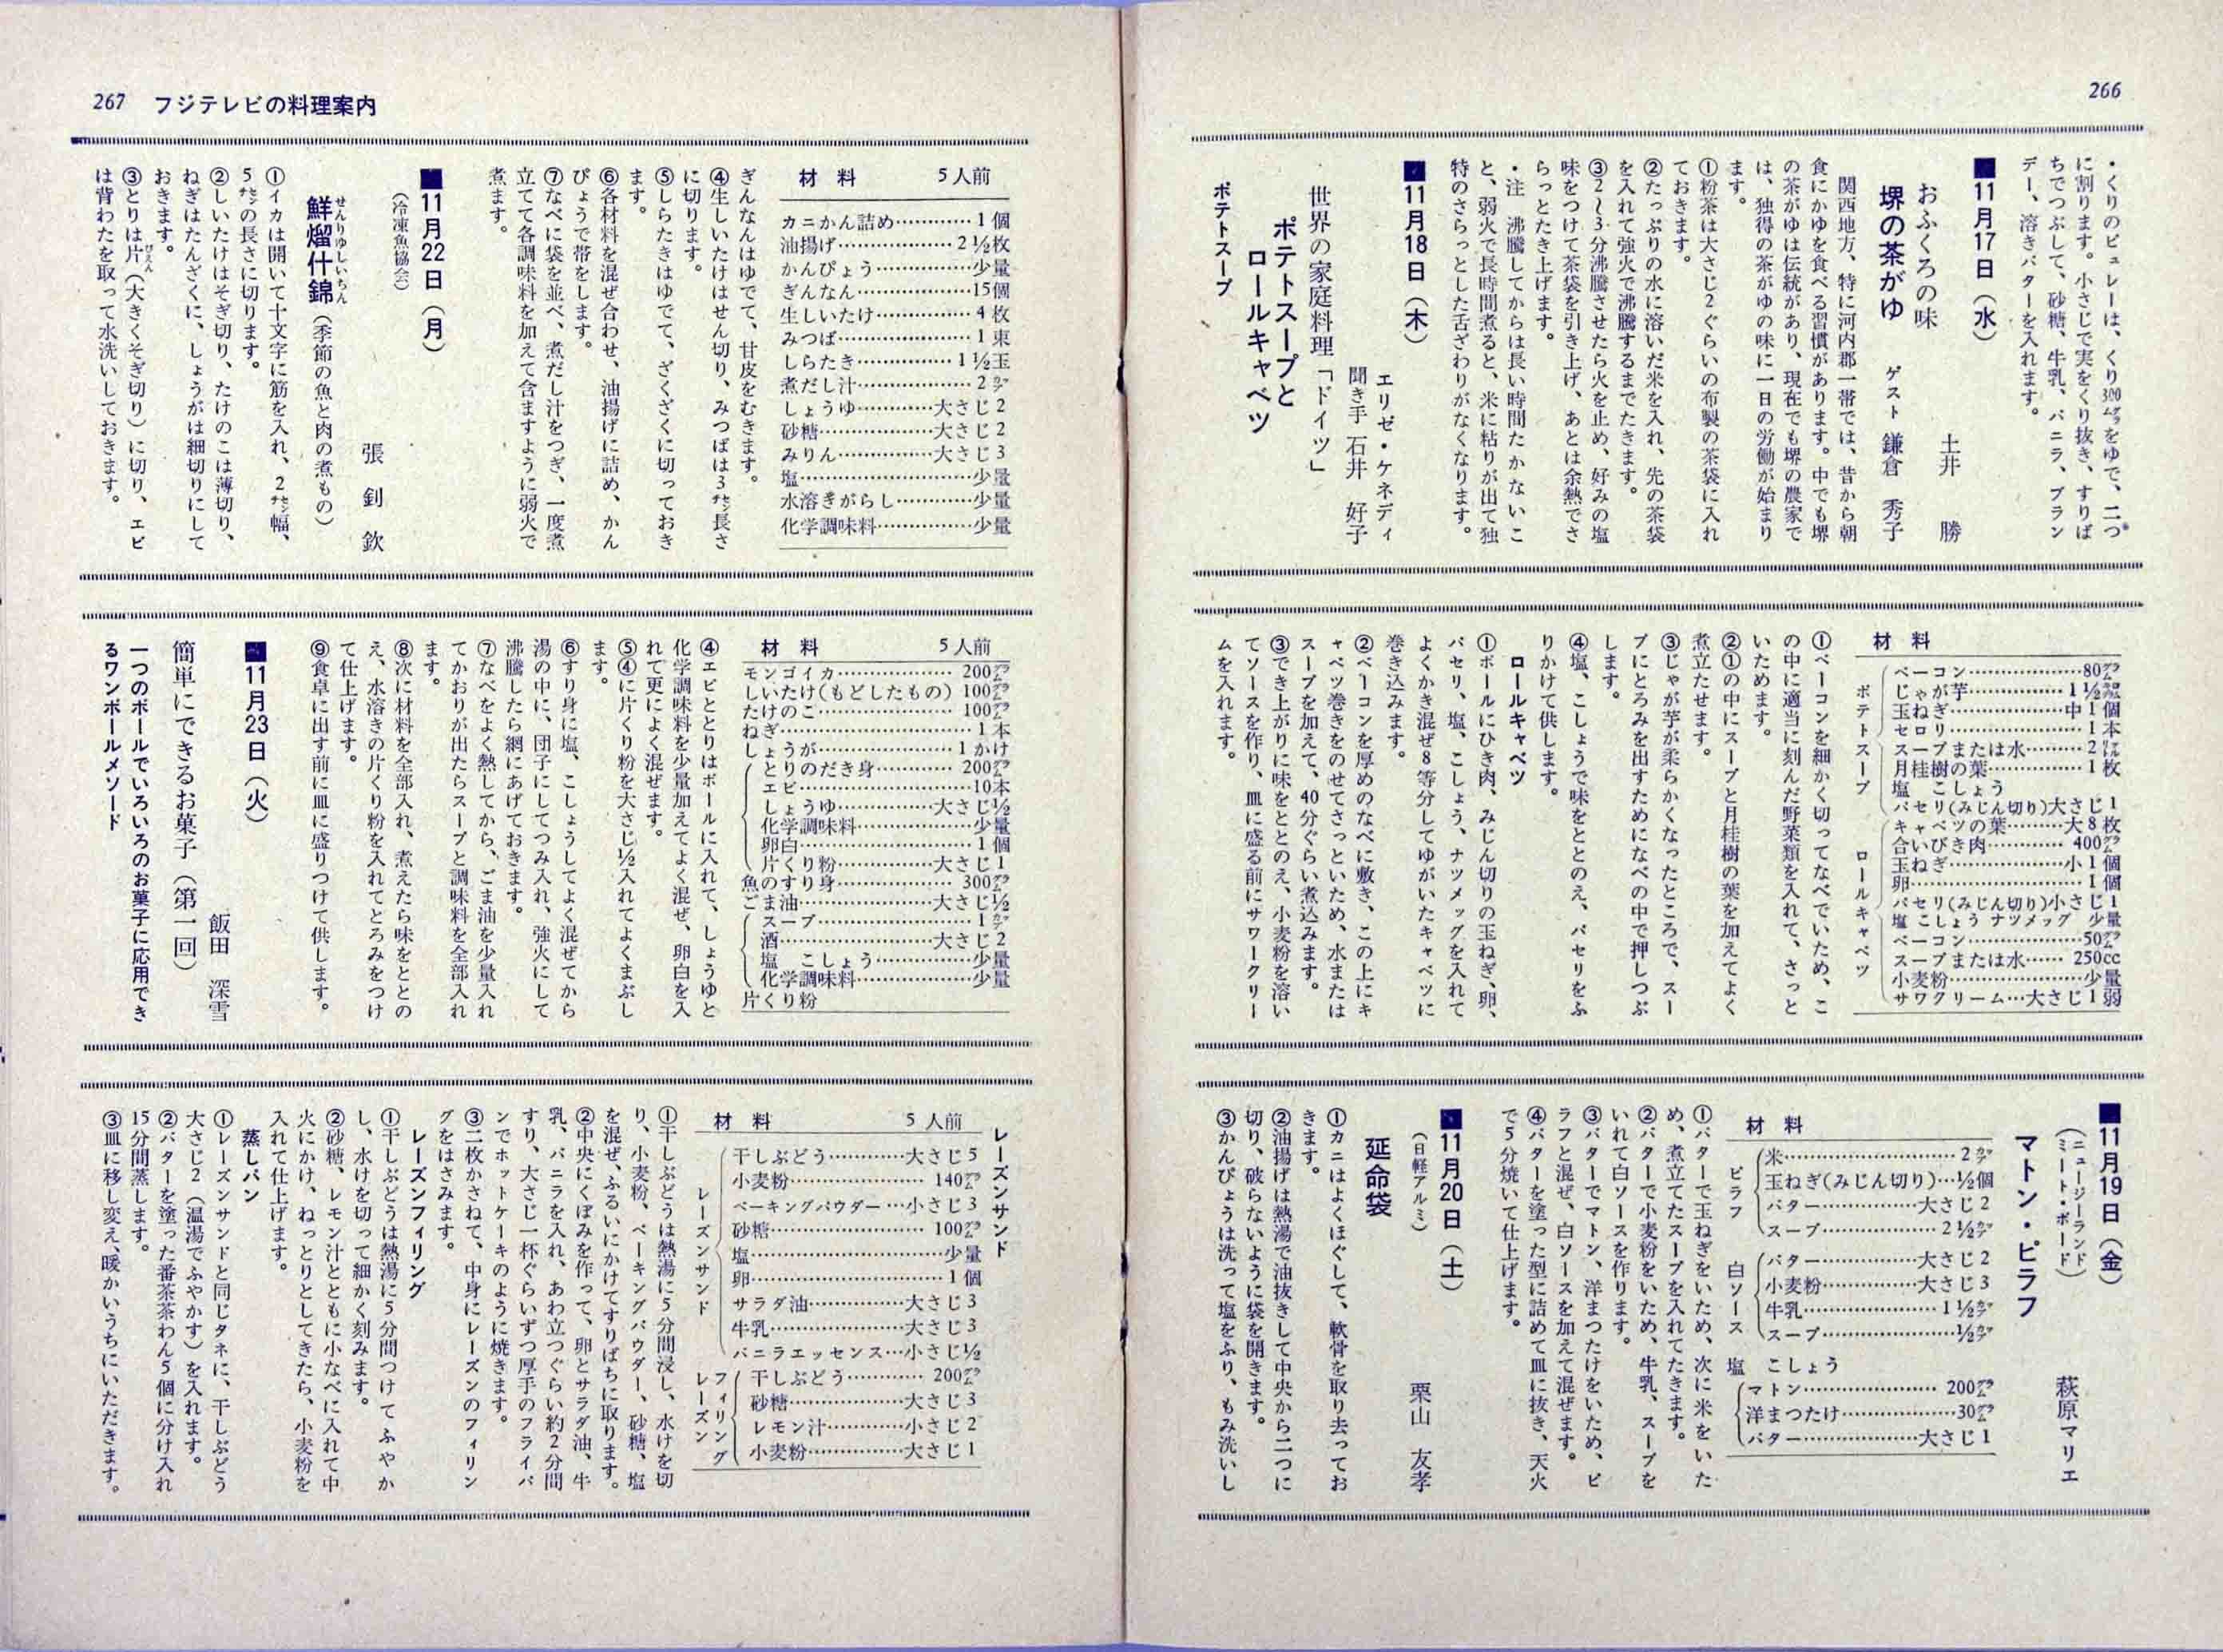 266
・くりのピュレーは、くり300グラムをゆで、二つ
に割ります。小さじで実をくり抜き、すりば
ちでつぶして、砂糖、牛乳、バニラ、ブラン
デー、溶きバターを入れます。
■11月17日（水）
おふくろの味　土井　勝
堺の茶がゆ　ゲスト　鎌倉　秀子
関西地方、特に河内郡一帯では、昔から朝
食にかゆを食べる習慣があります。中でも堺
の茶がゆは伝統があり、現在でも堺の農家で
は、独得の茶がゆの味に一日の労働が始まり
ます。
①粉茶は大さじ2ぐらいの布製の茶袋に入れ
ておきます。
②たっぷりの水に溶いだ米を入れ、先の茶袋
を入れて強火で沸騰するまでたきます。
③2～3分沸騰させたら火を止め、好みの塩
味をつけて茶袋を引き上げ、あとは余熱でさ
らっとたき上げます。
・注　沸騰してからは長い時間たかないこ
と、弱火で長時間煮ると、米に粘りが出て独
特のさらっとした舌ざわりがなくなります。
■11月18日（木）
エリゼ・ケネディ
聞き手　石井　好子
世界の家庭料理「ドイツ」
ポテトスープと
ロールキャベツ
ポテトスープ
材　料
ポテトスープ
ベーコン…………80グラム
じゃが芋…………1½キロ
玉ねぎ…………中1個
セロリ…………1本
スープまたは水………2リットル
月桂樹の葉…………1枚
塩　こしょう
パセリ(みじん切り)大さじ1
ロールキャベツ
キャベツの葉………大8枚
合いびき肉…………400グラム
玉ねぎ…………小1個
卵…………1個
パセリ(みじん切り)小さじ1
塩　こしょう　ナツメッグ　少量
ベーコン…………50グラム
スープまたは水……250cc
小麦粉…………少量
サワクリーム…大さじ1弱
①ベーコンを細かく切ってなべでいため、こ
の中に適当に刻んだ野菜類を入れて、さっと
いためます。
②①の中にスープと月桂樹の葉を加えてよく
煮立たせます。
③じゃが芋が柔らかくなったところで、スー
プにとろみを出すためになべの中で押しつぶ
します。
④塩、こしょうで味をととのえ、パセリをふ
りかけて供します。
ロールキャベツ
①ボールにひき肉、みじん切りの玉ねぎ、卵、
パセリ、塩、こしょう、ナツメッグを入れて
よくかき混ぜ8等分してゆがいたキャベツに
巻き込みます。
②ベーコンを厚めのなべに敷き、この上にキ
ャベツ巻きをのせてさっといため、水または
スープを加えて、40分ぐらい煮込みます。
③でき上がりに味をととのえ、小麦粉を溶い
てソースを作り、皿に盛る前にサワークリー
ムを入れます。
■11月19日（金）
（ニュージーランド
ミート・ボード）　萩原マリエ
マトン・ピラフ
材　料
ピラフ
米…………2カップ
玉ねぎ(みじん切り)…½個
バター…………大さじ2
スープ…………2½カップ
白ソース
バター…………大さじ2
小麦粉…………大さじ3
牛乳…………1½カップ
スープ…………½カップ
塩　こしょう
マトン…………200グラム
洋まつたけ…………30グラム
バター…………大さじ1
①バターで玉ねぎをいため、次に米をいた
め、煮立てたスープを入れてたきます。
②バターで小麦粉をいため、牛乳、スープを
いれて白ソースを作ります。
③バターでマトン、洋まつたけをいため、ピ
ラフと混ぜ、白ソースを加えて混ぜます。
④バターを塗った型に詰めて皿に抜き、天火
で5分焼いて仕上げます。
■11月20日（土）
（日軽アルミ）　栗山　友孝
延命袋
①カニはよくほぐして、軟骨を取り去ってお
きます。
②油揚げは熱湯で油抜きして中央から二つに
切り、破らないように袋を開きます。
③かんぴょうは洗って塩をふり、もみ洗いし
267　フジテレビの料理案内
材　料　5人前
カニかん詰め…………1個
油揚げ…………2½枚
かんぴょう…………少量
ぎんなん…………15個
生しいたけ…………4枚
みつば…………1束
しらたき…………1½玉
煮だし汁…………2カップ
しょうゆ…………大さじ2
砂糖…………大さじ2
みりん…………大さじ3
塩…………少量
水溶きがらし…………少量
化学調味料…………少量
ぎんなんはゆでて、甘皮をむきます。
④生しいたけはせん切り、みつばは3センチ長さ
に切ります。
⑤しらたきはゆでて、ざくざくに切っておき
ます。
⑥各材料を混ぜ合わせ、油揚げに詰め、かん
ぴょうで帯をします。
⑦なべに袋を並べ、煮だし汁をつぎ、一度煮
立てて各調味料を加えて含ますように弱火で
煮ます。
■11月22日（月）
（冷凍魚協会）
張　釗　欽
鮮熘什錦（季節の魚と肉の煮もの）
せんりゆしいちん
①イカは開いて十文字に筋を入れ、2センチ幅、
5センチの長さに切ります。
②しいたけはそぎ切り、たけのこは薄切り、
ねぎはたんざくに、しょうがは細切りにして
おきます。
③とりは片（大きくそぎ切り）に切り、エビ
ぴえん
は背わたを取って水洗いしておきます。
材　料　5人前
モンゴイカ…………200グラム
しいたけ(もどしたもの)100グラム
たけのこ…………100グラム
ねぎ…………1本
しょうが…………1かけ
とりのだき身…………200グラム
エビ…………10本
しょうゆ…………大さじ½
化学調味料…………少量
卵白…………1個
片くり粉…………大さじ1
魚のすり身…………300グラム
ごま油…………大さじ½
スープ…………1カップ
酒…………大さじ2
塩　こしょう…………少量
化学調味料…………少量
片くり粉
④エビととりはボールに入れて、しょうゆと
化学調味料を少量加えてよく混ぜ、卵白を入
れて更によく混ぜます。
⑤④に片くり粉を大さじ½入れてよくまぶし
ます。
⑥すり身に塩、こしょうしてよく混ぜてから
湯の中に、団子にしてつみ入れ、強火にして
沸騰したら網にあげておきます。
⑦なべをよく熱してから、ごま油を少量入れ
てかおりが出たらスープと調味料を全部入れ
ます。
⑧次に材料を全部入れ、煮えたら味をととの
え、水溶きの片くり粉を入れてとろみをつけ
て仕上げます。
⑨食卓に出す前に皿に盛りつけて供します。
■11月23日（火）
飯田　深雪
簡単にできるお菓子（第一回）
一つのボールでいろいろのお菓子に応用でき
るワンボールメソード
レーズンサンド
材　料　5人前
レーズンサンド
干しぶどう…………大さじ5
小麦粉…………140グラム
ベーキングパウダー…小さじ3
砂糖…………100グラム
塩…………少量
卵…………1個
サラダ油…………大さじ3
牛乳…………大さじ3
バニラエッセンス…小さじ½
レーズンフィリング
干しぶどう…………200グラム
砂糖…………大さじ3
レモン汁…………小さじ2
小麦粉…………大さじ1
①干しぶどうは熱湯に5分間浸し、水けを切
り、小麦粉、ベーキングパウダー、砂糖、塩
を混ぜ、ふるいにかけてすりばちに取ります。
②中央にくぼみを作って、卵とサラダ油、牛
乳、バニラを入れ、あわ立つぐらい約2分間
すり、大さじ一杯ぐらいずつ厚手のフライパ
ンでホットケーキのように焼きます。
③二枚かさねて、中身にレーズンのフィリン
グをはさみます。
レーズンフィリング
①干しぶどうは熱湯に5分間つけてふやか
し、水けを切って細かく刻みます。
②砂糖、レモン汁とともに小なべに入れて中
火にかけ、ねっとりとしてきたら、小麦粉を
入れて仕上げます。
蒸しパン
①レーズンサンドと同じタネに、干しぶどう
大さじ2（温湯でふやかす）を入れます。
②バターを塗った番茶茶わん5個に分け入れ
15分間蒸します。
③皿に移し変え、暖かいうちにいただきます。